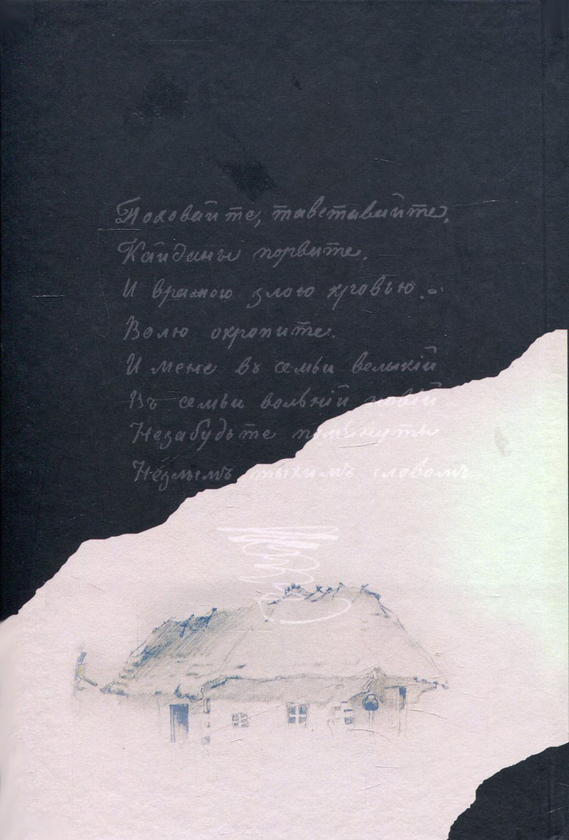 Поховайте, тавставайте,
Кайданы порвите.
И вражою злою кровью.
Волю окропите.
И мене въ семьи великій
Въ семьи вольній новій
Незабудьте помянуты
Незлымъ тыхимъ словомъ